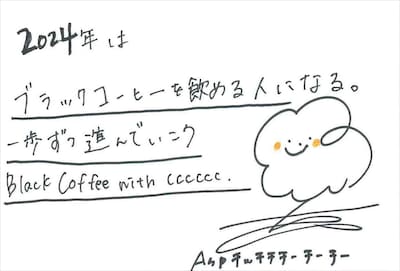 2024年は
ブラックコーヒーを飲める人になる。
一歩ずつ進んでいこう
Black Coffee with cccccc.